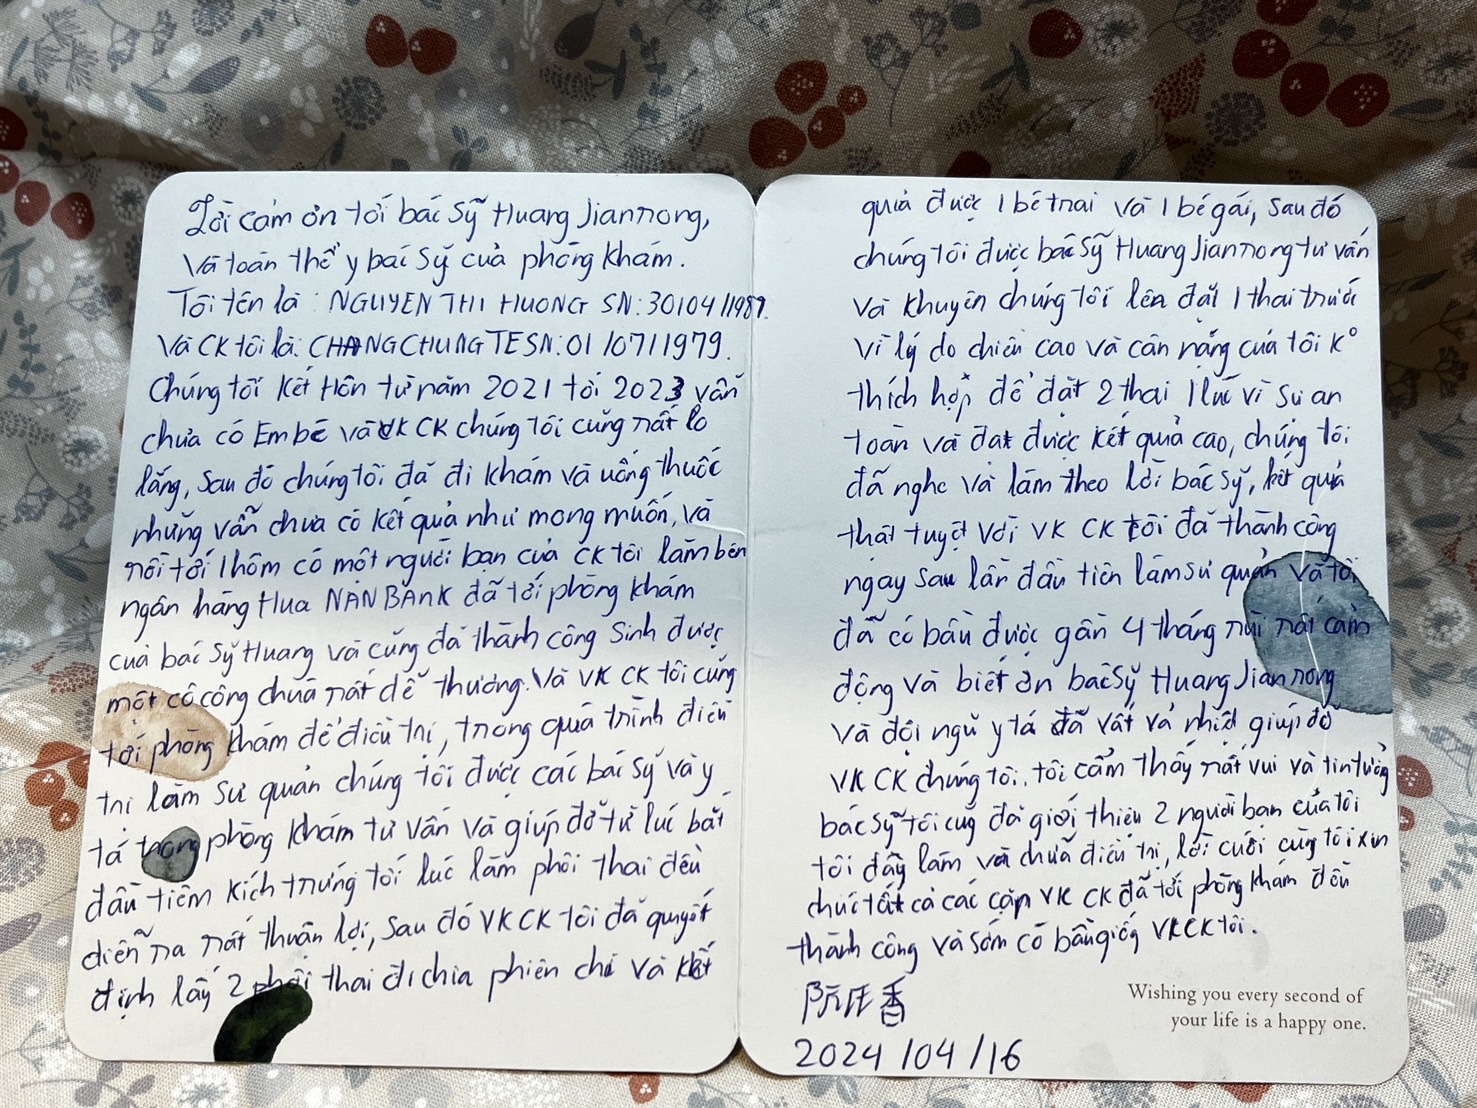 Lời cảm ơn tới bác sỹ Huang Jianrong,
và toàn thể y bác sỹ của phòng khám.
Tôi tên là : NGUYEN THI HUONG SN: 30/04/1987.
Và CK tôi là: CHANG CHUNG TE SN: 01/07/1979.
Chúng tôi kết Hôn từ năm 2021 tới 2023 vẫn
chưa có Em bé và VK CK chúng tôi cũng rất lo
lắng, sau đó chúng tôi đã đi khám và uống thuốc
nhưng vẫn chưa có kết quả như mong muốn, và
rồi tới 1 hôm có một người bạn của CK tôi làm bên
ngân hàng Hua NAN BANK đã tới phòng khám
của bác sỹ Huang và cũng đã thành công sinh được
một cô công chúa rất dễ thương. Và VK CK tôi cũng
tới phòng khám để điều trị, trong quá trình điều
trị làm sư quản chúng tôi được các bác sỹ và y
tá trong phòng khám tư vấn và giúp đỡ từ lúc bắt
đầu tiêm kích trứng tới lúc làm phôi thai đều
diễn ra rất thuận lợi, sau đó VK CK tôi đã quyết
định lấy 2 phôi thai đi chia phiên chi và kết
quả được 1 bé trai và 1 bé gái, sau đó
chúng tôi được bác sỹ Huang Jianrong tư vấn
và khuyên chúng tôi lên đặt 1 thai trước
vì lý do chiều cao và cân nặng của tôi K°
thích hợp để đặt 2 thai 1 lúc vì sự an
toàn và đạt được kết quả cao, chúng tôi
đã nghe và làm theo lời bác sỹ, kết quả
thật tuyệt vời VK CK tôi đã thành công
ngay sau lần đầu tiên làm sư quản và tôi
đã có bầu được gần 4 tháng rùi rất cảm
động và biết ơn bác sỹ Huang Jianrong
và đội ngũ y tá đã vất vả nhiệt giúp đỡ
VK CK chúng tôi. tôi cảm thấy rất vui và tin tưởng
bác sỹ tôi cũg đã giới thiệu 2 người bạn của tôi
tới đây làm và chữa điều trị, lời cuối cùg tôi xin
chúc tất cả các cặp VK CK đã tới phòng khám đều
thành công và sớm có bầu giốg VKCK tôi.
阮氏香
Wishing you every second of
your life is a happy one.
2024/04/16